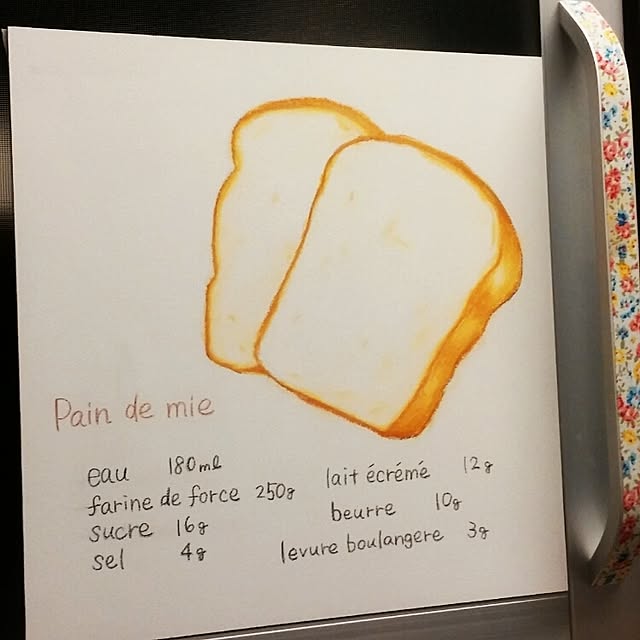 Pain de mie
eau 180ml
farine de force 250g
sucre 16g
sel 4g
lait écrémé 12g
beurre 10g
levure boulangere 3g